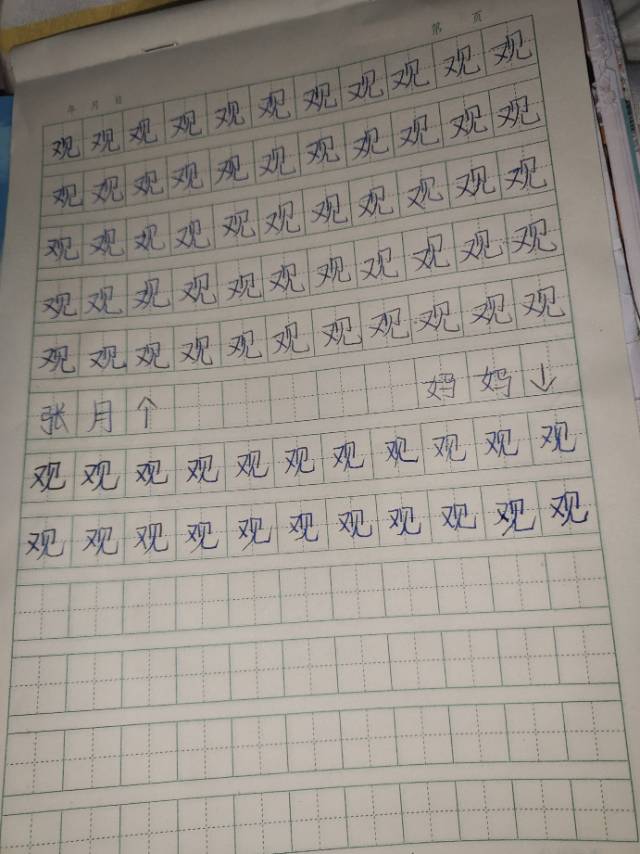 第 页
年 月 日
观观观观观观观观观观观
观观观观观观观观观观观
观观观观观观观观观观观
观观观观观观观观观观观
观观观观观观观观观观观
张月↑ 妈妈↓
观观观观观观观观观观观
观观观观观观观观观观观